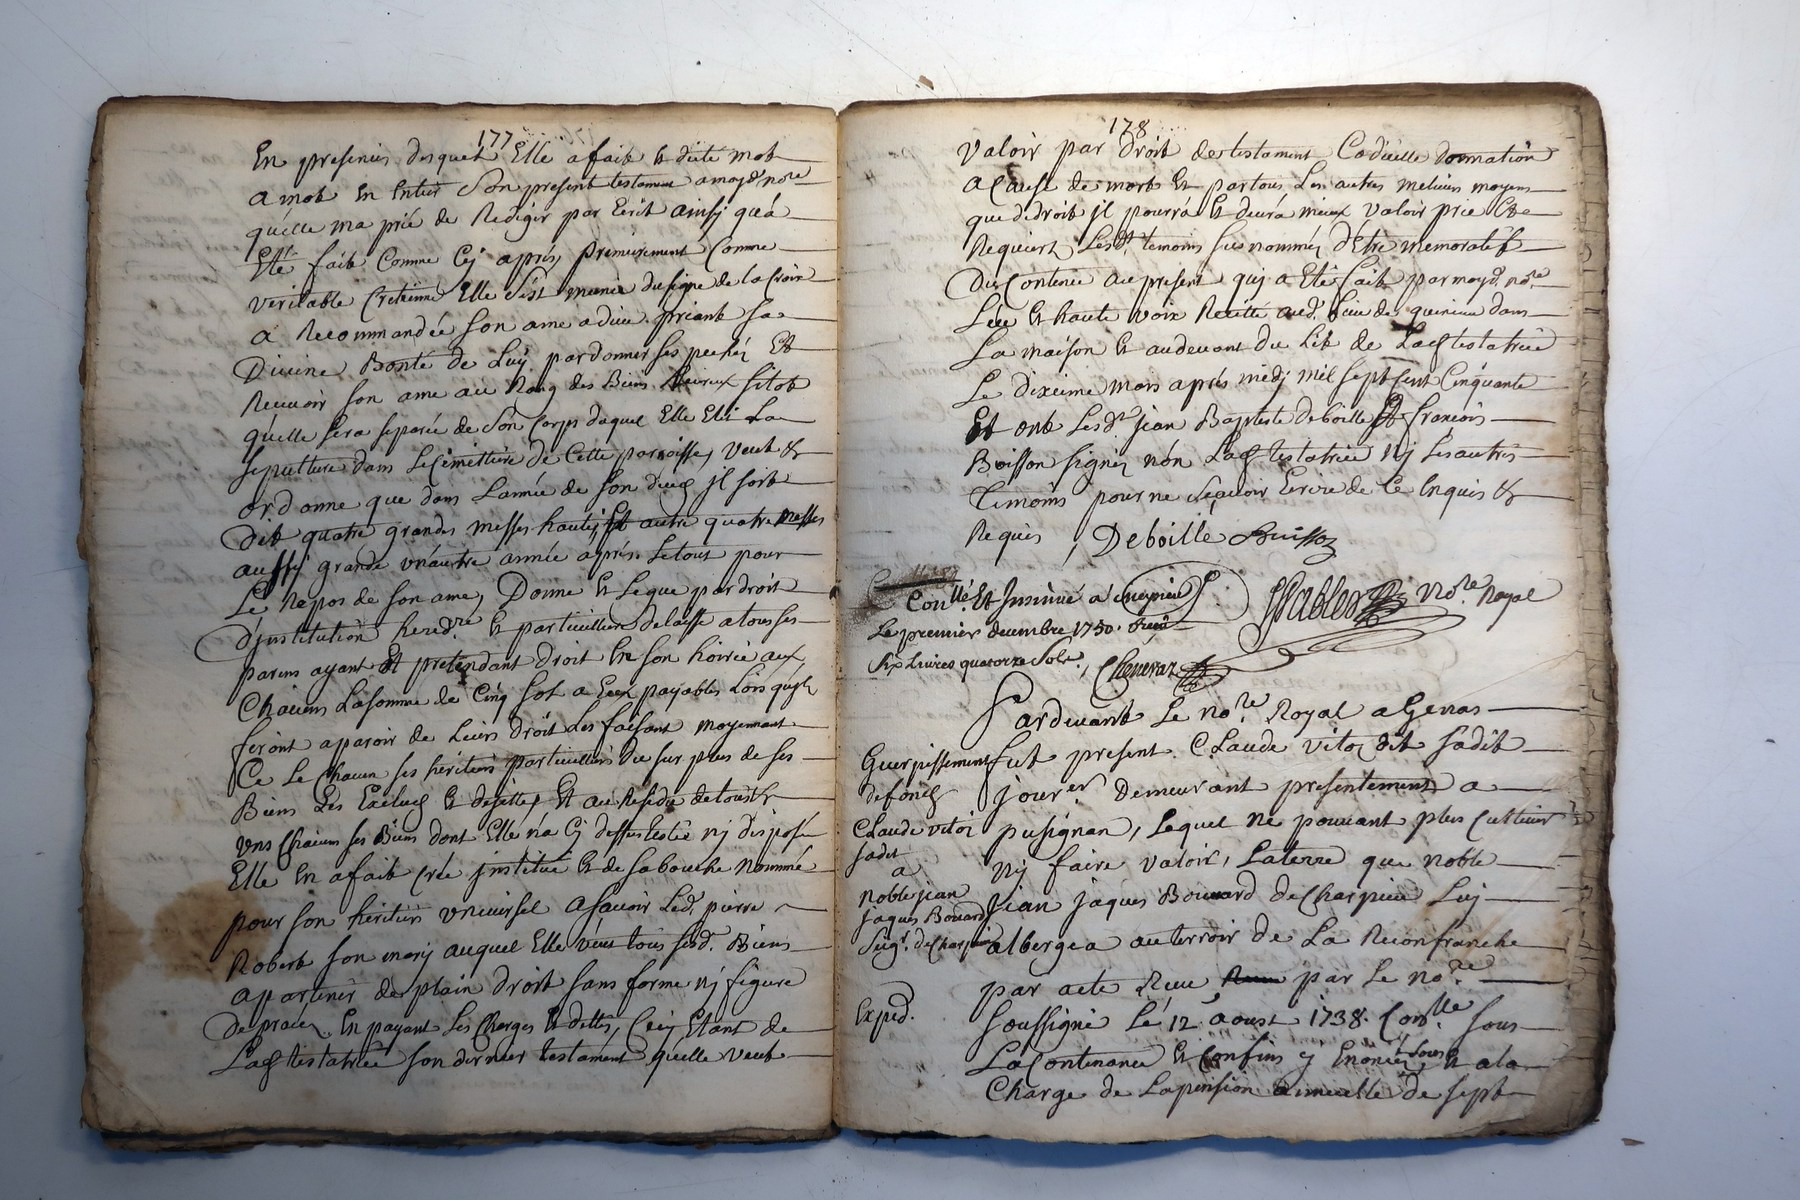 177
En presences desquels Elle a fait et dicté mot
a mot en entier son present testament a moyd. no.re
qu'elle ma prié de Rediger par Ecrit ainsy qu'a
Eté fait Comme Cy aprés, premierement Comme
veritable Cretienne Elle s'est munie du signe de la Croix
a Recommandée son ame a dieu priant sa
Divine Bonté de Luy pardonner ses pechéz Et
Recevoir son ame au Rang des Biens heureux sitot
qu'elle sera separée de son Corps duquel Elle Elit La
sepulture dans le Cimettiere de Cette parroisse, veut &
ordonne que dans L'année de son decez jl soit
dit quatre grandes messes hautes, Et autre quatre messes
aussy grande vnautre année aprés. Le tout pour
Le Repos de son ame, Donne et Legue par droit
d'jnstitution hered.re et particulliere delaisse a tous ses
parens ayant Et pretendant droit En son hoirie aux
Chacuns La somme de Cinq sol a Eux payables Lors qu'jls
feront aparoir de Leurs droit Les faisant moyennant
Ce Le Chacun ses heritiers particulliers du sur plus de ses
Biens Les Exclud et dejette, Et au Residu de tous &
vns Chacuns ses Biens dont Elle n'a Cy dessus testé ny disposé
Elle En a fait Crée jnstitué et de sa bouche nommé
pour son heritiers vniversel a savoir Led. pierre
Robert son mary auquel Elle veut tous sesd. Biens
apartenir de plain droit sans forme ny figure
de procez, En payant Les Charges et dettes, Cecy Etant de
Lad. testatrice son dernier testament qu'elle veut
178
valoir par droit de testament Codicille donnation
a Cause de mort Et par tous Les autres melieurs moyens
que de droit jl pourra et devra mieux valoir prie Et
Requiert Lesd. temoins sus nommés d'Etre memoratif
du Contenu au present quj a Eté fait par moyd. no.re
Leu et haute voix Recitté aud. Lieu de quirieu dans
La maison et au devant du Lit de Lad. testatrice
Le dixieme mars aprés midj mil sept sent Cinquante
Et ont Lesd. jean Baptiste deboille Et francois
Boisson signéz non Lad. testatrice Nj Les autres
temoins pour ne sçavoir Ecrire de Ce Enquis &
Requis, Deboille Buisson
Con.llé Et Jnsinué a
Pables No.re Royal
Le premier decembre 1750. Reçu
six Livres quatorze Sols. Cheneraz
Pardevant Le no.re Royal a Genas
Guerpissement
de fond
Claude vitoz
sadit
a
Noble jean
jaques Bovard
Seig.r de Charpieu
Exped.
fut present Claude vitoz dit sadit
jour.er Demeurant presentement a
pusignan, Lequel ne pouvant plus Cultiver
Ny faire valoir, La terre que noble
jean jaques Bouvard de Charpieu Luy
albergea au terroir de La Reconfranche
par acte Receu par Le no.re
soussigné Le 12. aoust 1738. Con.llé sous
La Contenance et Confins cy Enoncés sous et a la
Charge de La pension annuelle de sept